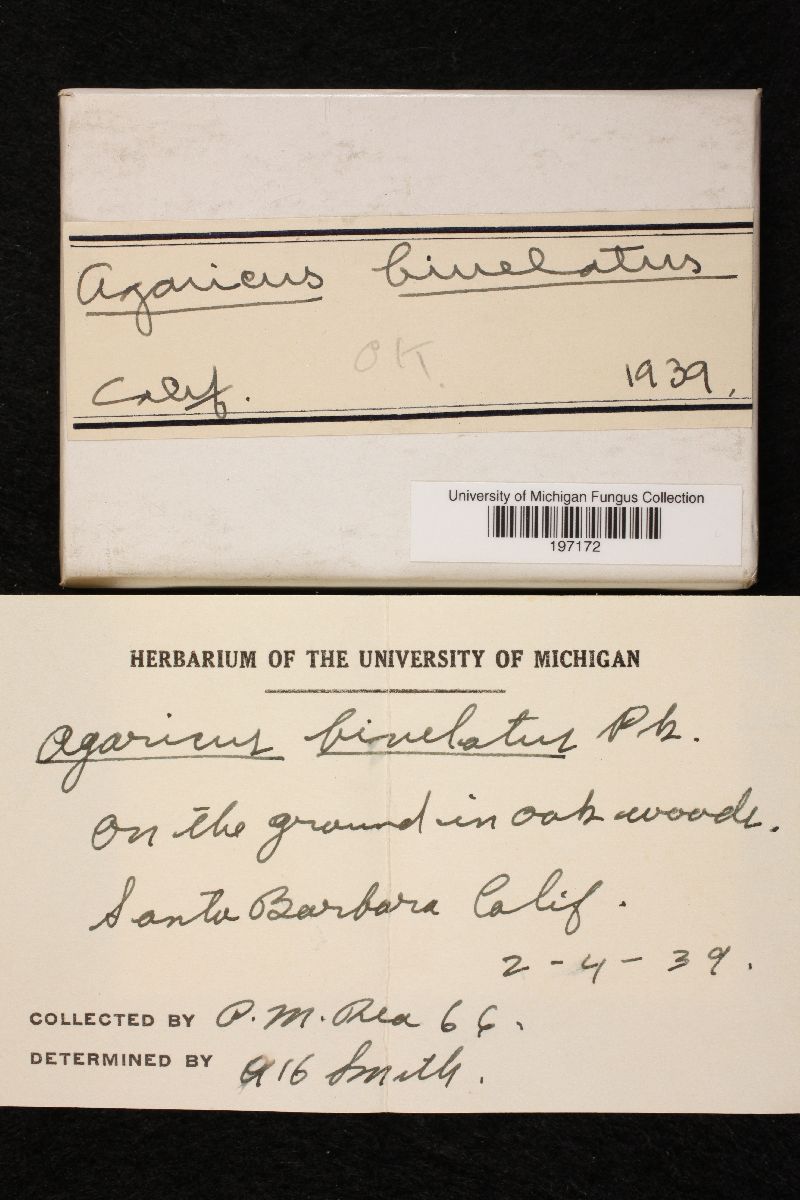 Agaricus bivelatus
OK.
Calif. 1939.
University of Michigan Fungus Collection
197172
HERBARIUM OF THE UNIVERSITY OF MICHIGAN
Agaricus bivelatus Pk.
on the ground in oak woods.
Santa Barbara Calif.
2-4-39.
COLLECTED BY P. M. Rea 66.
DETERMINED BY AH Smith.